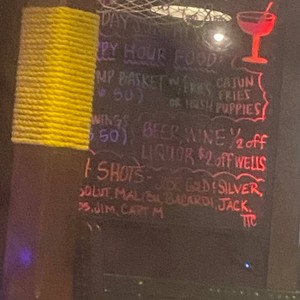 DAY
PPY HOUR FOOD
MP BASKET W/ FRIES, CAJUN
50) FRIES
OR HUSH PUPPIES
WINGS
50) BEER, WINE 1/2 off
LIQUOR $2 off WELLS
SHOTS - GOLD & SILVER,
OLUT, MALIBU, BACARDI, JACK,
JIM, CAPT M